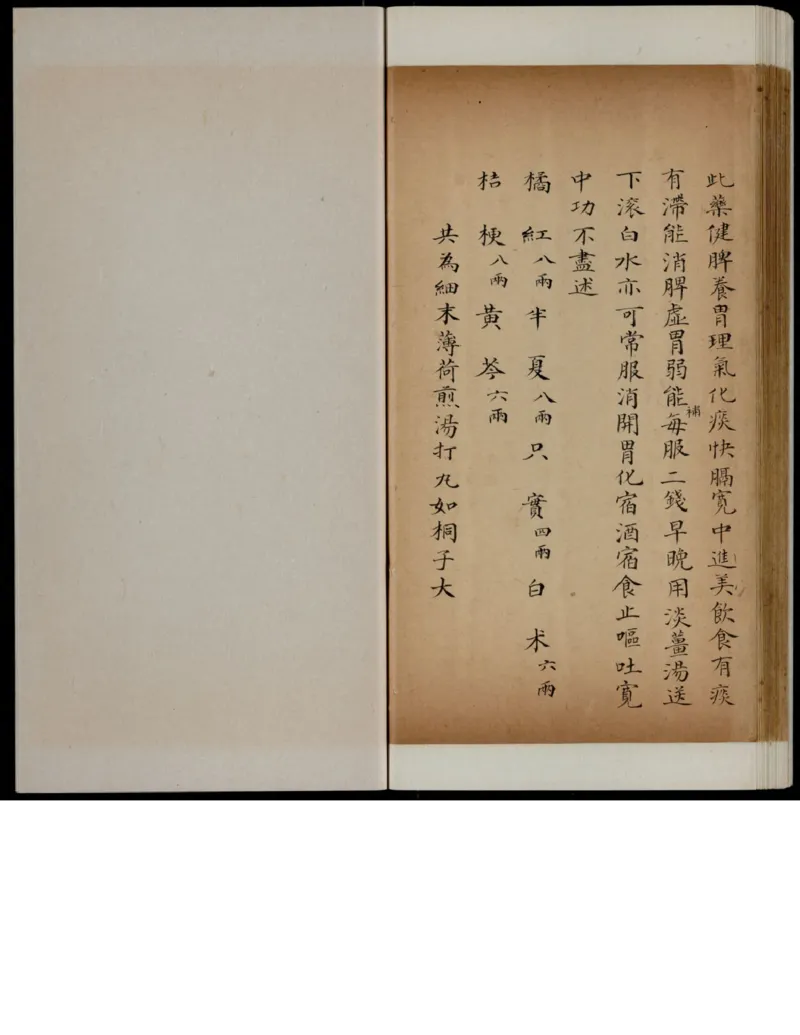 此藥健脾養胃理氣化痰快膈寬中進美飲食有痰
有滯能消脾虛胃弱能補每服二錢早晚用淡薑湯送
下滚白水亦可常服消開胃化宿酒宿食止嘔吐寬
中功不盡述
橘紅八兩半夏八兩只實四兩白术六兩
桔梗八兩黃芩六兩
共為細末薄荷煎湯打丸如桐子大